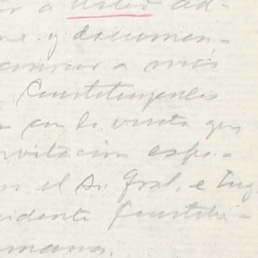 a Usted ad-
me y documen-
a mis
Constituyentes
con la visita que
invitación espe-
el Sr. Gral. e Ing
sidente Constitu-
mana.